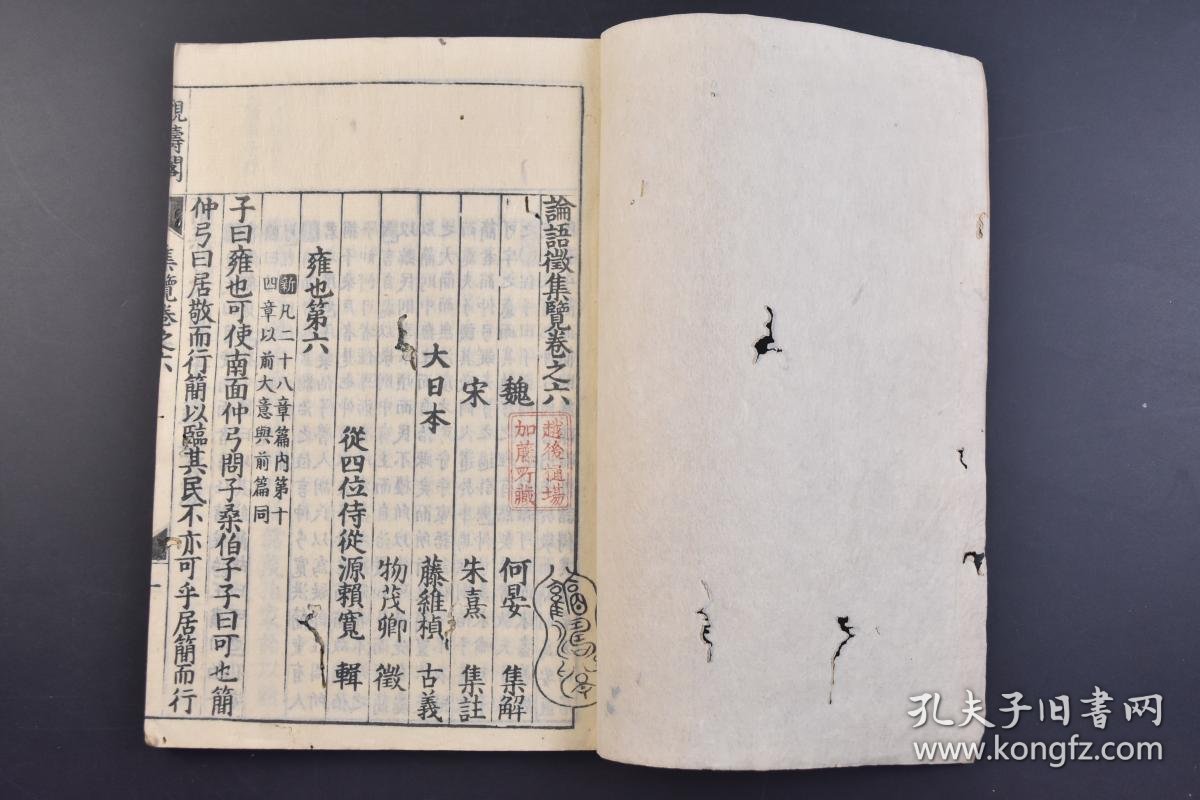 論語徵集覽卷之六
魏 何晏 集解
宋 朱熹 集註
大日本 藤維楨 古義
物茂卿 徵
從四位侍從源賴寬 輯
雍也第六
新凡二十八章篇内第十
四章以前大意與前篇同
子曰雍也可使南面仲弓問子桑伯子子曰可也簡
仲弓曰居敬而行簡以臨其民不亦可乎居簡而行
觀濤閣
集覽卷之六
一
越後道場
加藤所藏
孔夫子旧书网
www.kongfz.com